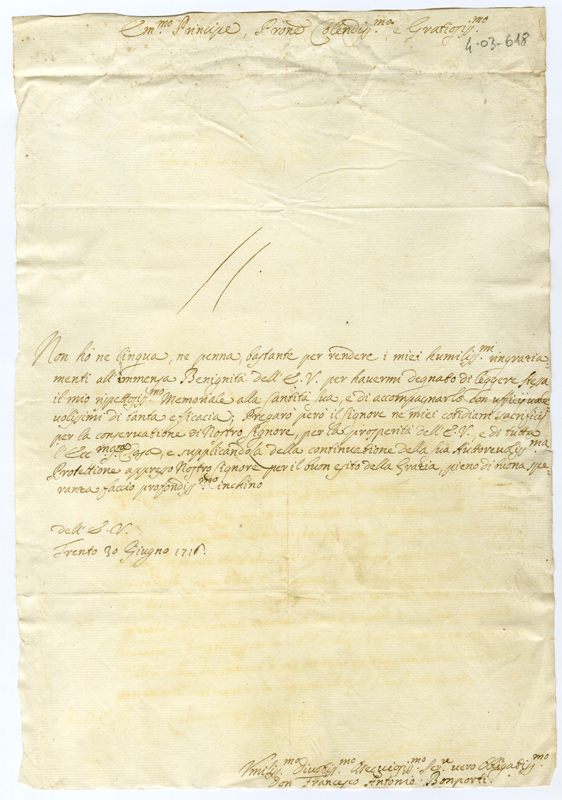 Em.mo Principe, Prone Colendiss.mo e Gratiosiss.mo
4-03-618
Non ho ne lingua, ne penna, bastante per rendere i miei humiliss.mi ringratia-
menti all'immensa Benignità dell'E.V. per havermi degnato di leggere stesa
il mio rispettosiss.mo Memoriale alla Santità sua, e di accompagnarlo con ufficij
volissimi di tanta efficacia; Pregarò però il Signore ne miei cotidiani sacrificij
per la conservatione di Nostro Signore, per la prosperità dell'E.V. e di tutta
l'Ecc.ma Casa, e supplicandola della continuatione della sua Autorevoliss.ma
Protettione appresso Nostro Signore per il buon esito della Gratia, pieno di buona spe-
ranza faccio profondiss.mo inchino
dell'E.V.
Trento 30 Giugno 1716.
Umiliss.mo Divotiss.mo Ossequiosiss.mo Ser.re vero Obligatiss.mo
Don Francesco Antonio Bonporti.